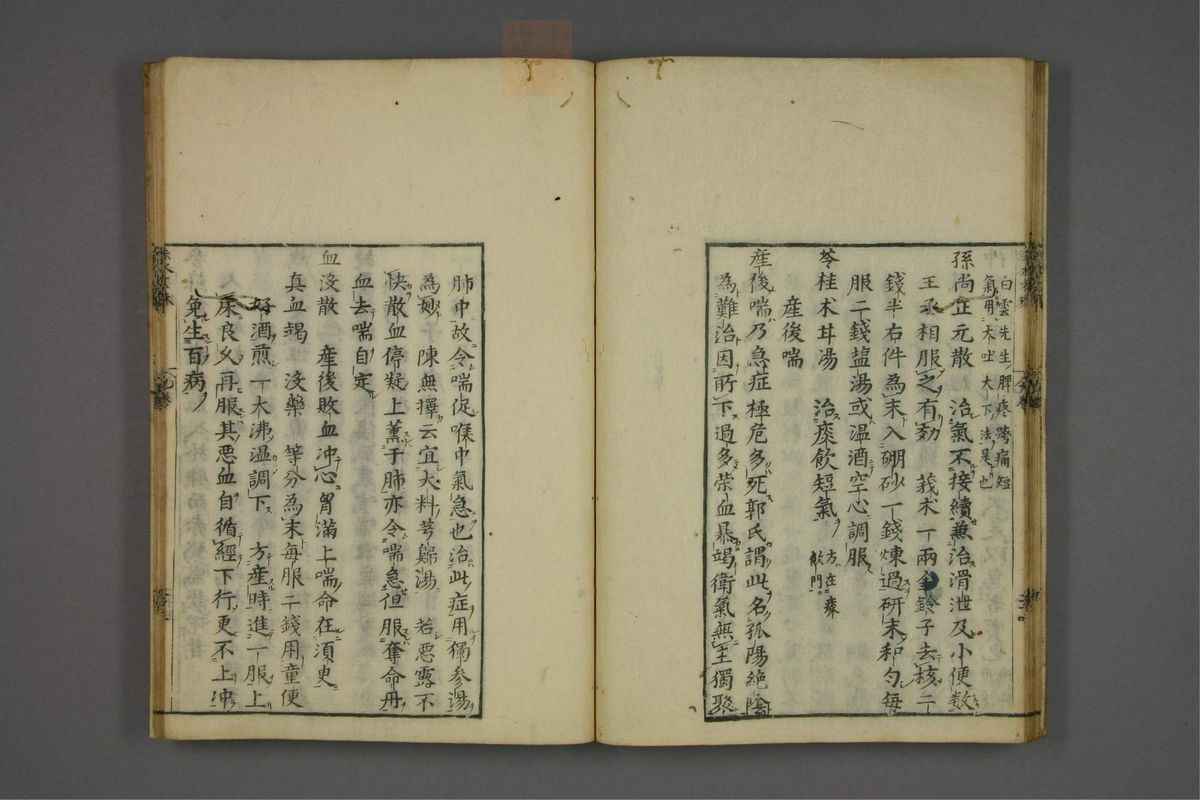 白雲先生脾疼跨痛短
氣用大吐大下法是也
孫尚正元散　治氣不接續兼治滑泄及小便数
王丞相服之有効　莪朮一兩金鈴子去核二
錢半右件為末入硼砂一錢煉過研末和勻每
服二錢盐湯或温酒空心調服
苓桂朮甘湯　治痰飲短氣　方在痰
飲門
産後喘
産後喘乃急症極危多死郭氏謂此名孤陽絶陰
為難治因所下過多荣血暴竭衛氣無主獨聚
肺中故令喘促喉中氣急也治此症用獨参湯
為妙　陳無擇云宜大料芎歸湯　若悪露不
快散血停凝上薫于肺亦令喘急但服奪命丹
血去喘自定
血没散　産後敗血冲心胃滿上喘命在須臾
真血竭　没藥　等分為末每服二錢用童便
好酒煎一大沸温調下　方産時進一服上
床良久再服其悪血自循經下行更不上冲
免生百病